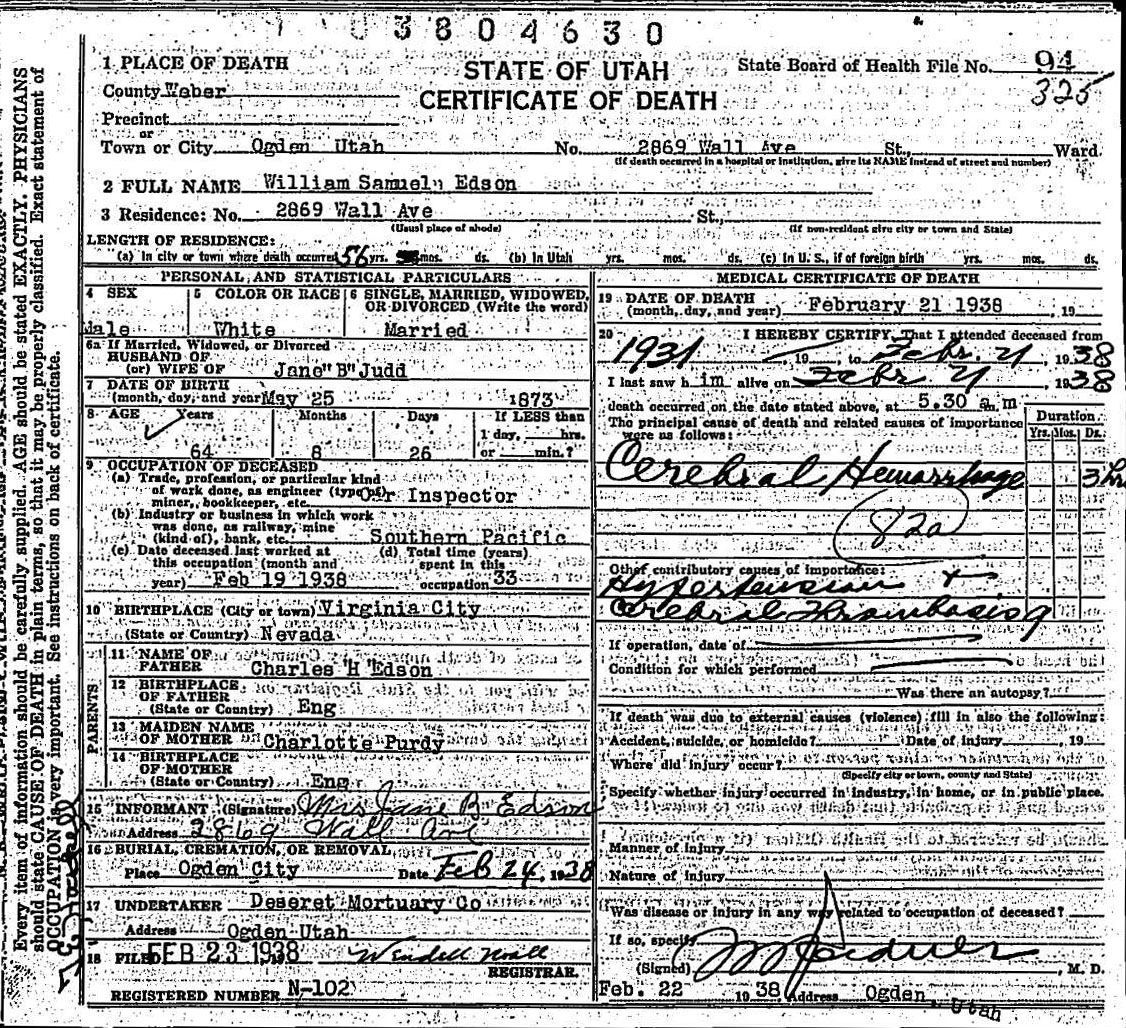 3804630
1 PLACE OF DEATH
STATE OF UTAH
State Board of Health File No. 94
325
County Weber
CERTIFICATE OF DEATH
Precinct
or
Town or City Ogden Utah No. 2869 Wall Ave St., Ward
(If death occurred in a hospital or institution, give its NAME instead of street and number)
2 FULL NAME William Samuel Edson
3 Residence: No. 2869 Wall Ave St.,
(Usual place of abode) (If non-resident give city or town and State)
LENGTH OF RESIDENCE:
(a) In city or town where death occurred 56 yrs. mos. ds. (b) In Utah yrs. mos. ds. (c) In U. S., if of foreign birth yrs. mos. ds.
PERSONAL AND STATISTICAL PARTICULARS
4 SEX 5 COLOR OR RACE 6 SINGLE, MARRIED, WIDOWED,
OR DIVORCED (Write the word)
Male White Married
6a If Married, Widowed, or Divorced
HUSBAND OF
(or) WIFE OF Jane "B" Judd
7 DATE OF BIRTH
(month, day, and year) May 25 1873
8 AGE Years Months Days If LESS than
1 day, hrs.
64 8 26 or min.?
9 OCCUPATION OF DECEASED
(a) Trade, profession, or particular kind
of work done, as engineer (type of)
miner, bookkeeper, etc. Car Inspector
(b) Industry or business in which work
was done, as railway, mine
(kind of), bank, etc. Southern Pacific
(c) Date deceased last worked at (d) Total time (years)
this occupation (month and spent in this
year) Feb 19 1938 occupation 33
10 BIRTHPLACE (City or town) Virginia City
(State or Country) Nevada
PARENTS
11 NAME OF
FATHER Charles "H" Edson
12 BIRTHPLACE
OF FATHER
(State or Country) Eng
13 MAIDEN NAME
OF MOTHER Charlotte Purdy
14 BIRTHPLACE
OF MOTHER
(State or Country) Eng
15 INFORMANT (Signature) Mrs Jane B Edson
Address 2869 Wall Ave
16 BURIAL, CREMATION, OR REMOVAL
Place Ogden City Date Feb 24, 1938
17 UNDERTAKER Deseret Mortuary Co
Address Ogden Utah
18 FILED FEB 23 1938 Wendell Noall
REGISTRAR.
REGISTERED NUMBER N-102
MEDICAL CERTIFICATE OF DEATH
19 DATE OF DEATH
(month, day, and year) February 21 1938, 19
20 I HEREBY CERTIFY, That I attended deceased from
1931 19, to Febr. 21, 1938
I last saw him alive on Febr 21, 1938
death occurred on the date stated above, at 5.30 a.m
The principal cause of death and related causes of importance
were as follows:
Duration
Yrs. Mos. Ds.
Cerebral Hemorrhage 3 hrs
82a
Other contributory causes of importance:
Hypertension +
Cerebral Thrombosis
If operation, date of
Condition for which performed
Was there an autopsy?
If death was due to external causes (violence) fill in also the following:
Accident, suicide, or homicide? Date of injury, 19
Where did injury occur?
(Specify city or town, county and State)
Specify whether injury occurred in industry, in home, or in public place.
Manner of Injury
Nature of injury
Was disease or injury in any way related to occupation of deceased?
If so, specify
(Signed) , M. D.
Feb. 22 1938 Address Ogden, Utah
Every item of information should be carefully supplied. AGE should be stated EXACTLY. PHYSICIANS
should state CAUSE OF DEATH in plain terms, so that it may be properly classified. Exact statement of
OCCUPATION is very important. See instructions on back of certificate.